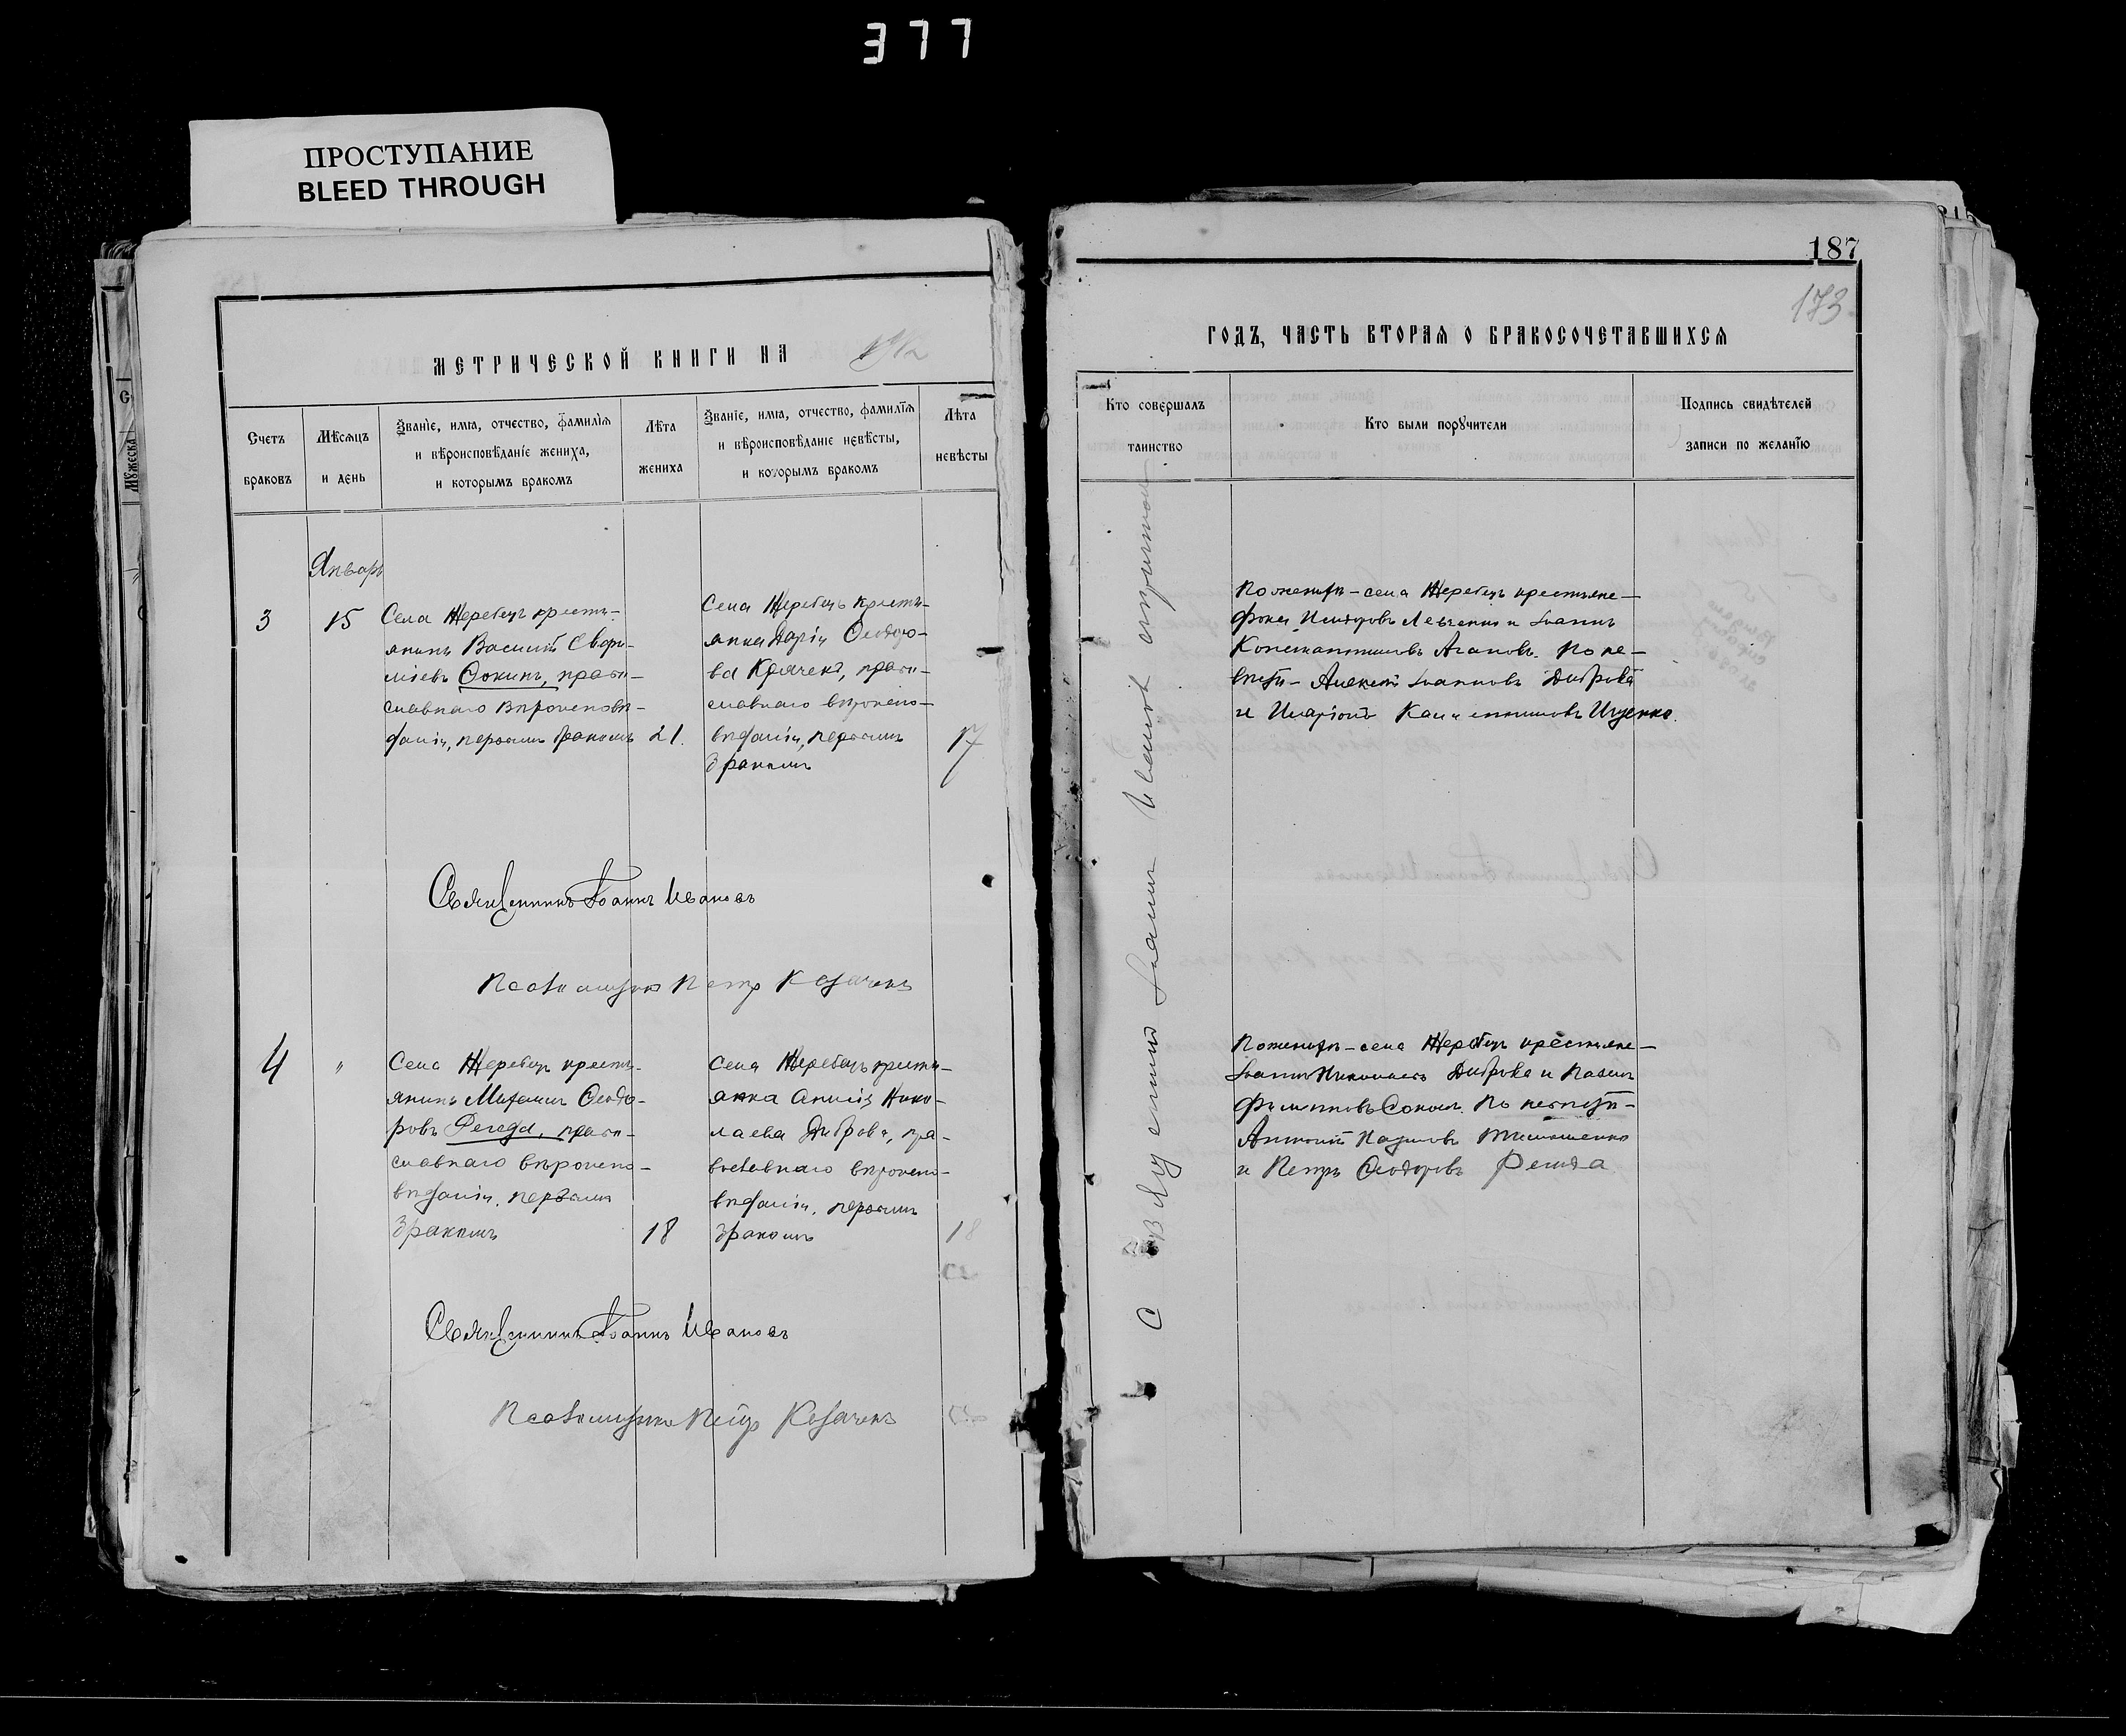 377
ПРОСТУПАНИЕ
BLEED THROUGH
МЕТРИЧЕСКОЙ КНИГИ НА 1912
Счетъ браковъ
Мѣсяцъ и день
Званіе, имя, отчество, фамилія
и вѣроисповѣданіе жениха,
и которымъ бракомъ
Лѣта жениха
Званіе, имя, отчество, фамилія
и вѣроисповѣданіе невѣсты,
и которымъ бракомъ
Лѣта невѣсты
Январь
3
15
Села Жеребец крестъ-
янинъ Василій
Ѳокинъ, право-
славнаго вѣроисповѣ-
данія, первымъ бракомъ
21.
Села Жеребецъ кресть-
янка Дарія Ѳеодоро-
ва Крячекъ, право-
славнаго вѣроиспо-
вѣданія, первымъ
бракомъ
17
Священникъ Іоаннъ Ивановъ
Псаломщикъ Петр Козаченъ
4
"
Села Жеребец кресть-
янинъ Михаилъ Ѳеодо-
ровъ Регеда, право-
славнаго вѣроиспо-
вѣданія, первымъ
бракомъ
18
Села Жеребецъ кресть-
янка Анисія Нико-
лаева Диброва, пра-
вославнаго вѣроиспо-
вѣданія, первымъ
бракомъ
18
Священникъ Іоаннъ Ивановъ
Псаломщикъ Петр Козаченъ
187
173
ГОДЪ, ЧАСТЬ ВТОРАЯ О БРАКОСОЧЕТАВШИХСЯ
Кто совершалъ
таинство
Кто были поручители
Подпись свидѣтелей
записи по желанію
Священникъ Іоаннъ Ивановъ
По женихѣ – села Жеребец крестьяне –
Фока Исидоровъ Левченко и Іоаннъ
Константиновъ Агаповъ. По не-
вѣстѣ – Алексій Іоанновъ Диброва
и Иларіонъ Ищенко.
По женихѣ – села Жеребец крестьяне –
Іоаннъ Николаевъ Диброва и Павелъ
Филипповъ Соколъ. По невѣстѣ –
Антоній Тимошенко
и Петръ Ѳеодоровъ